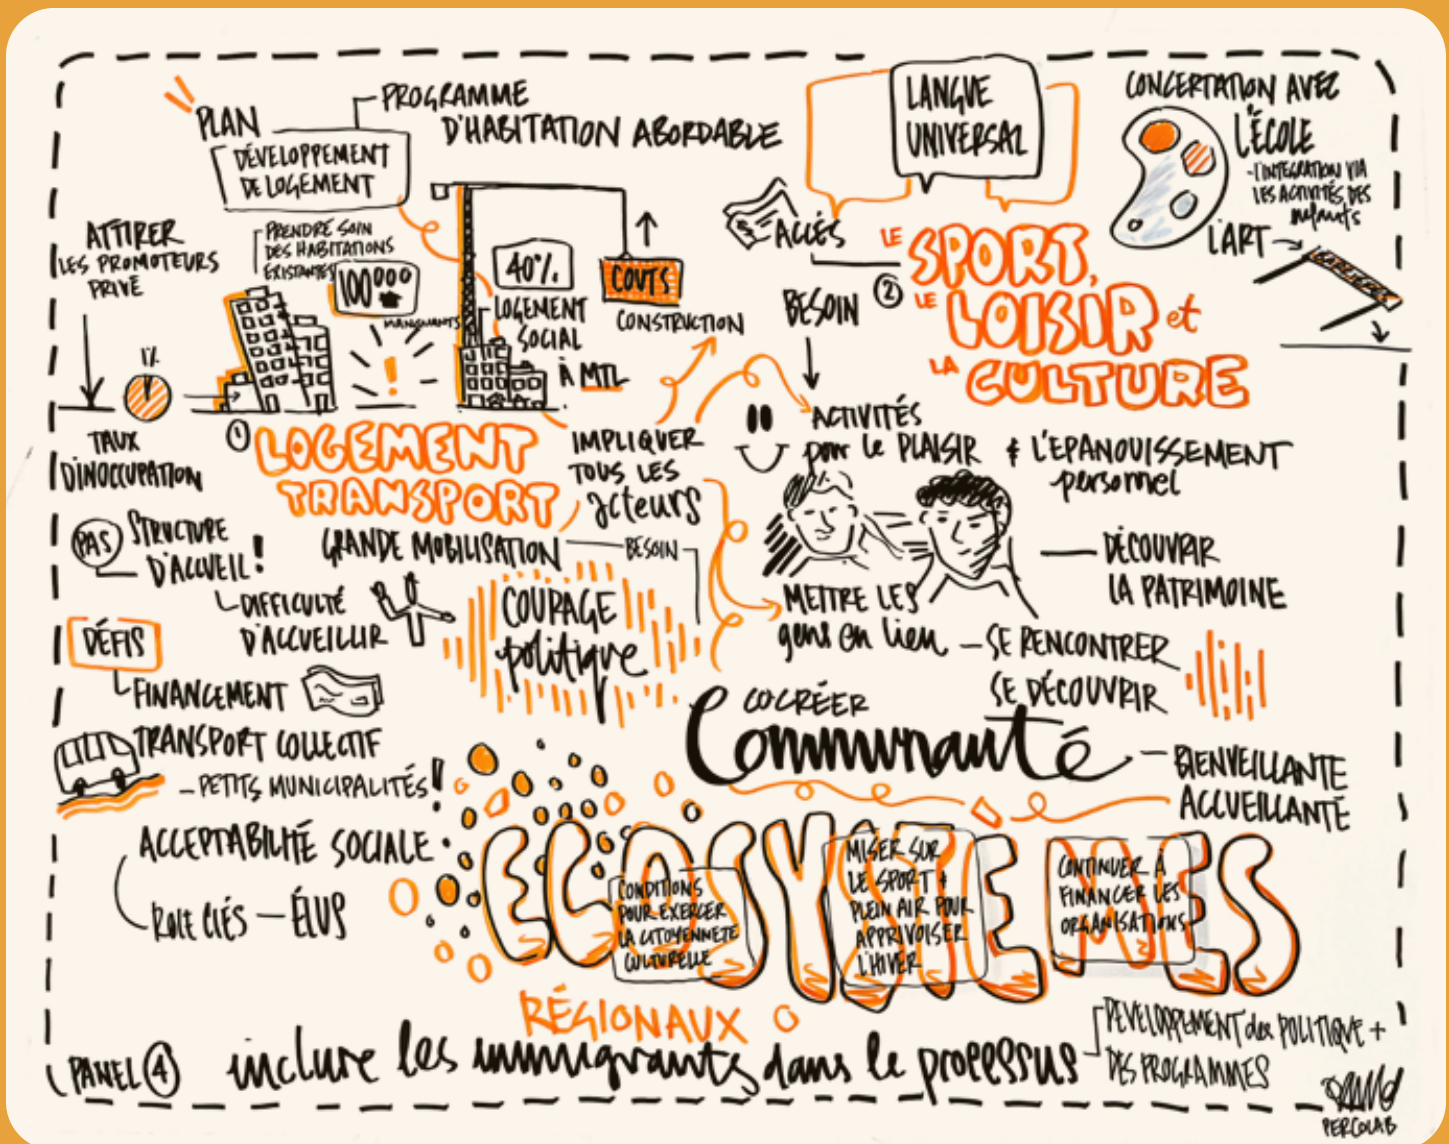 PLAN
DÉVELOPPEMENT
DE LOGEMENT
PROGRAMME
D'HABITATION ABORDABLE
ATTIRER
LES PROMOTEURS
PRIVÉ
PRENDRE SOIN
DES HABITATIONS
EXISTANTES
100000
MANQUANTS
40%
LOGEMENT
SOCIAL
À MTL
COUTS
CONSTRUCTION
1%
TAUX
D'INOCCUPATION
1 LOGEMENT
TRANSPORT
IMPLIQUER
TOUS LES
acteurs
GRANDE MOBILISATION
BESOIN
COUPAGE
politique
PAS STRUCTURE
D'ACCUEIL!
DIFFICULTÉ
D'ACCUEILLIR
DÉFIS
FINANCEMENT
TRANSPORT COLLECTIF
- PETITS MUNICIPALITÉS!
ACCEPTABILITÉ SOCIALE
ROLE CLÉS - ÉLUS
LANGUE
UNIVERSAL
$
ACCÉS
BESOIN
2
LE SPORT,
LE LOISIR et
LA CULTURE
CONCERTATION AVEC
L'ÉCOLE
- L'INTEGRATION VIA
LES ACTIVITÉS DES
enfants
L'ART
ACTIVITÉS
pour le PLAISIR & L'EPANOUISSEMENT
personnel
DÉCOUVRIR
LA PATRIMOINE
METTRE LES
gens en lien - SE RENCONTRER
SE DÉCOUVRIR
COCRÉER
Communauté
- BIENVEILLANTE
ACCUEILLANTE
ECOSYSTEMES
CONDITIONS
POUR EXERCER
LA CITOYENNETÉ
CULTURELLE
MISER SUR
LE SPORT +
PLEIN AIR POUR
APPRIVOISER
L'HIVER
CONTINUER À
FINANCER LES
ORGANISATIONS
RÉGIONAUX
PANEL 4
inclure les immigrants dans le processus
DEVELOPPEMENT des POLITIQUE +
DES PROGRAMMES
PERCOLAB